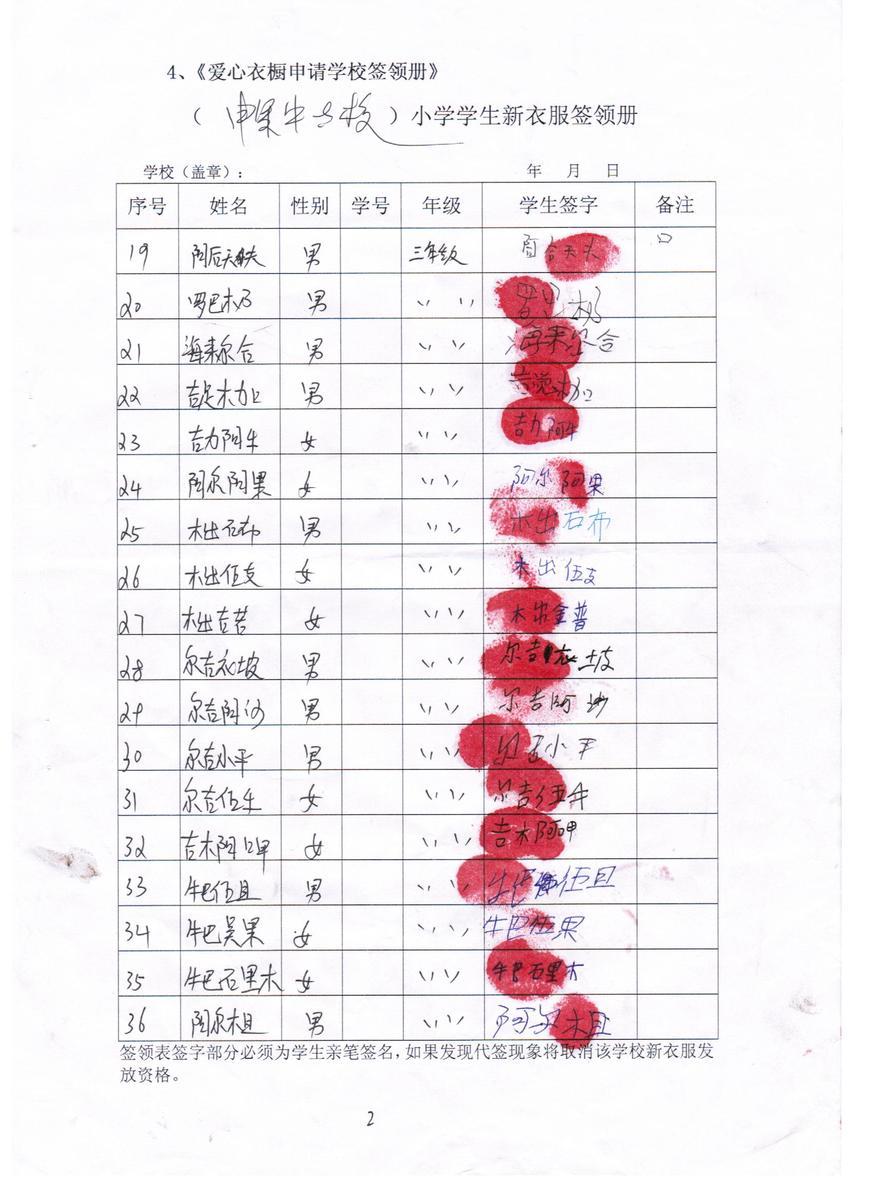 4、《爱心衣橱申请学校签领册》
（ 牛 校 ）小学学生新衣服签领册
学校（盖章）： 年 月 日
序号 姓名 性别 学号 年级 学生签字 备注
19 男 三年级
20 罗巴木乃 男 〃
21 海来尔合 男 〃 海来尔合
22 男 〃
23 吉力阿牛 女 〃 吉力阿牛
24 阿尔阿果 女 〃 阿尔阿果
25 木出石布 男 〃 木出石布
26 木出伍支 女 〃 木出伍支
27 木出 女 〃 木出金普
28 尔吉衣坡 男 〃 尔吉 坡
29 尔吉阿沙 男 〃 尔吉阿沙
30 尔吉小平 男 〃 尔 小平
31 尔吉伍牛 女 〃 尔吉伍牛
32 吉木阿呷 女 〃 吉木阿呷
33 牛巴伍且 男 〃 牛巴 伍且
34 牛巴吴果 女 〃 牛巴伍果
35 牛巴石里木 女 〃 牛巴石里木
36 阿尔木且 男 〃 阿尔木且
签领表签字部分必须为学生亲笔签名，如果发现代签现象将取消该学校新衣服发
放资格。
2